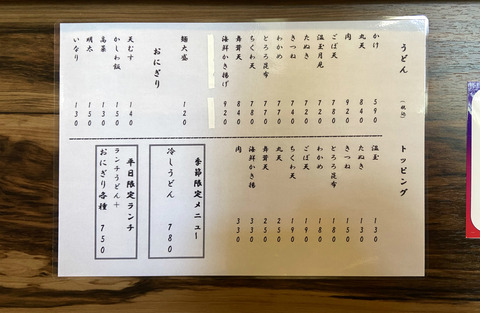 うどん (税込)
かけ 590
丸天 840
肉 920
ごぼ天 780
温玉月見 720
たぬき 720
きつね 740
わかめ 770
とろろ昆布 770
ちくわ天 780
舞茸天 840
海鮮かき揚げ 920
麺大盛 120
おにぎり
天むす 140
かしわ飯
高菜
明太 150
いなり 130
トッピング
温玉 130
たぬき 130
きつね 150
とろろ昆布 180
わかめ 180
ごぼ天 190
ちくわ天 190
丸天 250
舞茸天 250
海鮮かき揚 330
肉 330
季節限定メニュー
冷しうどん 780
平日限定ランチ
ランチうどん＋
おにぎり各種 750